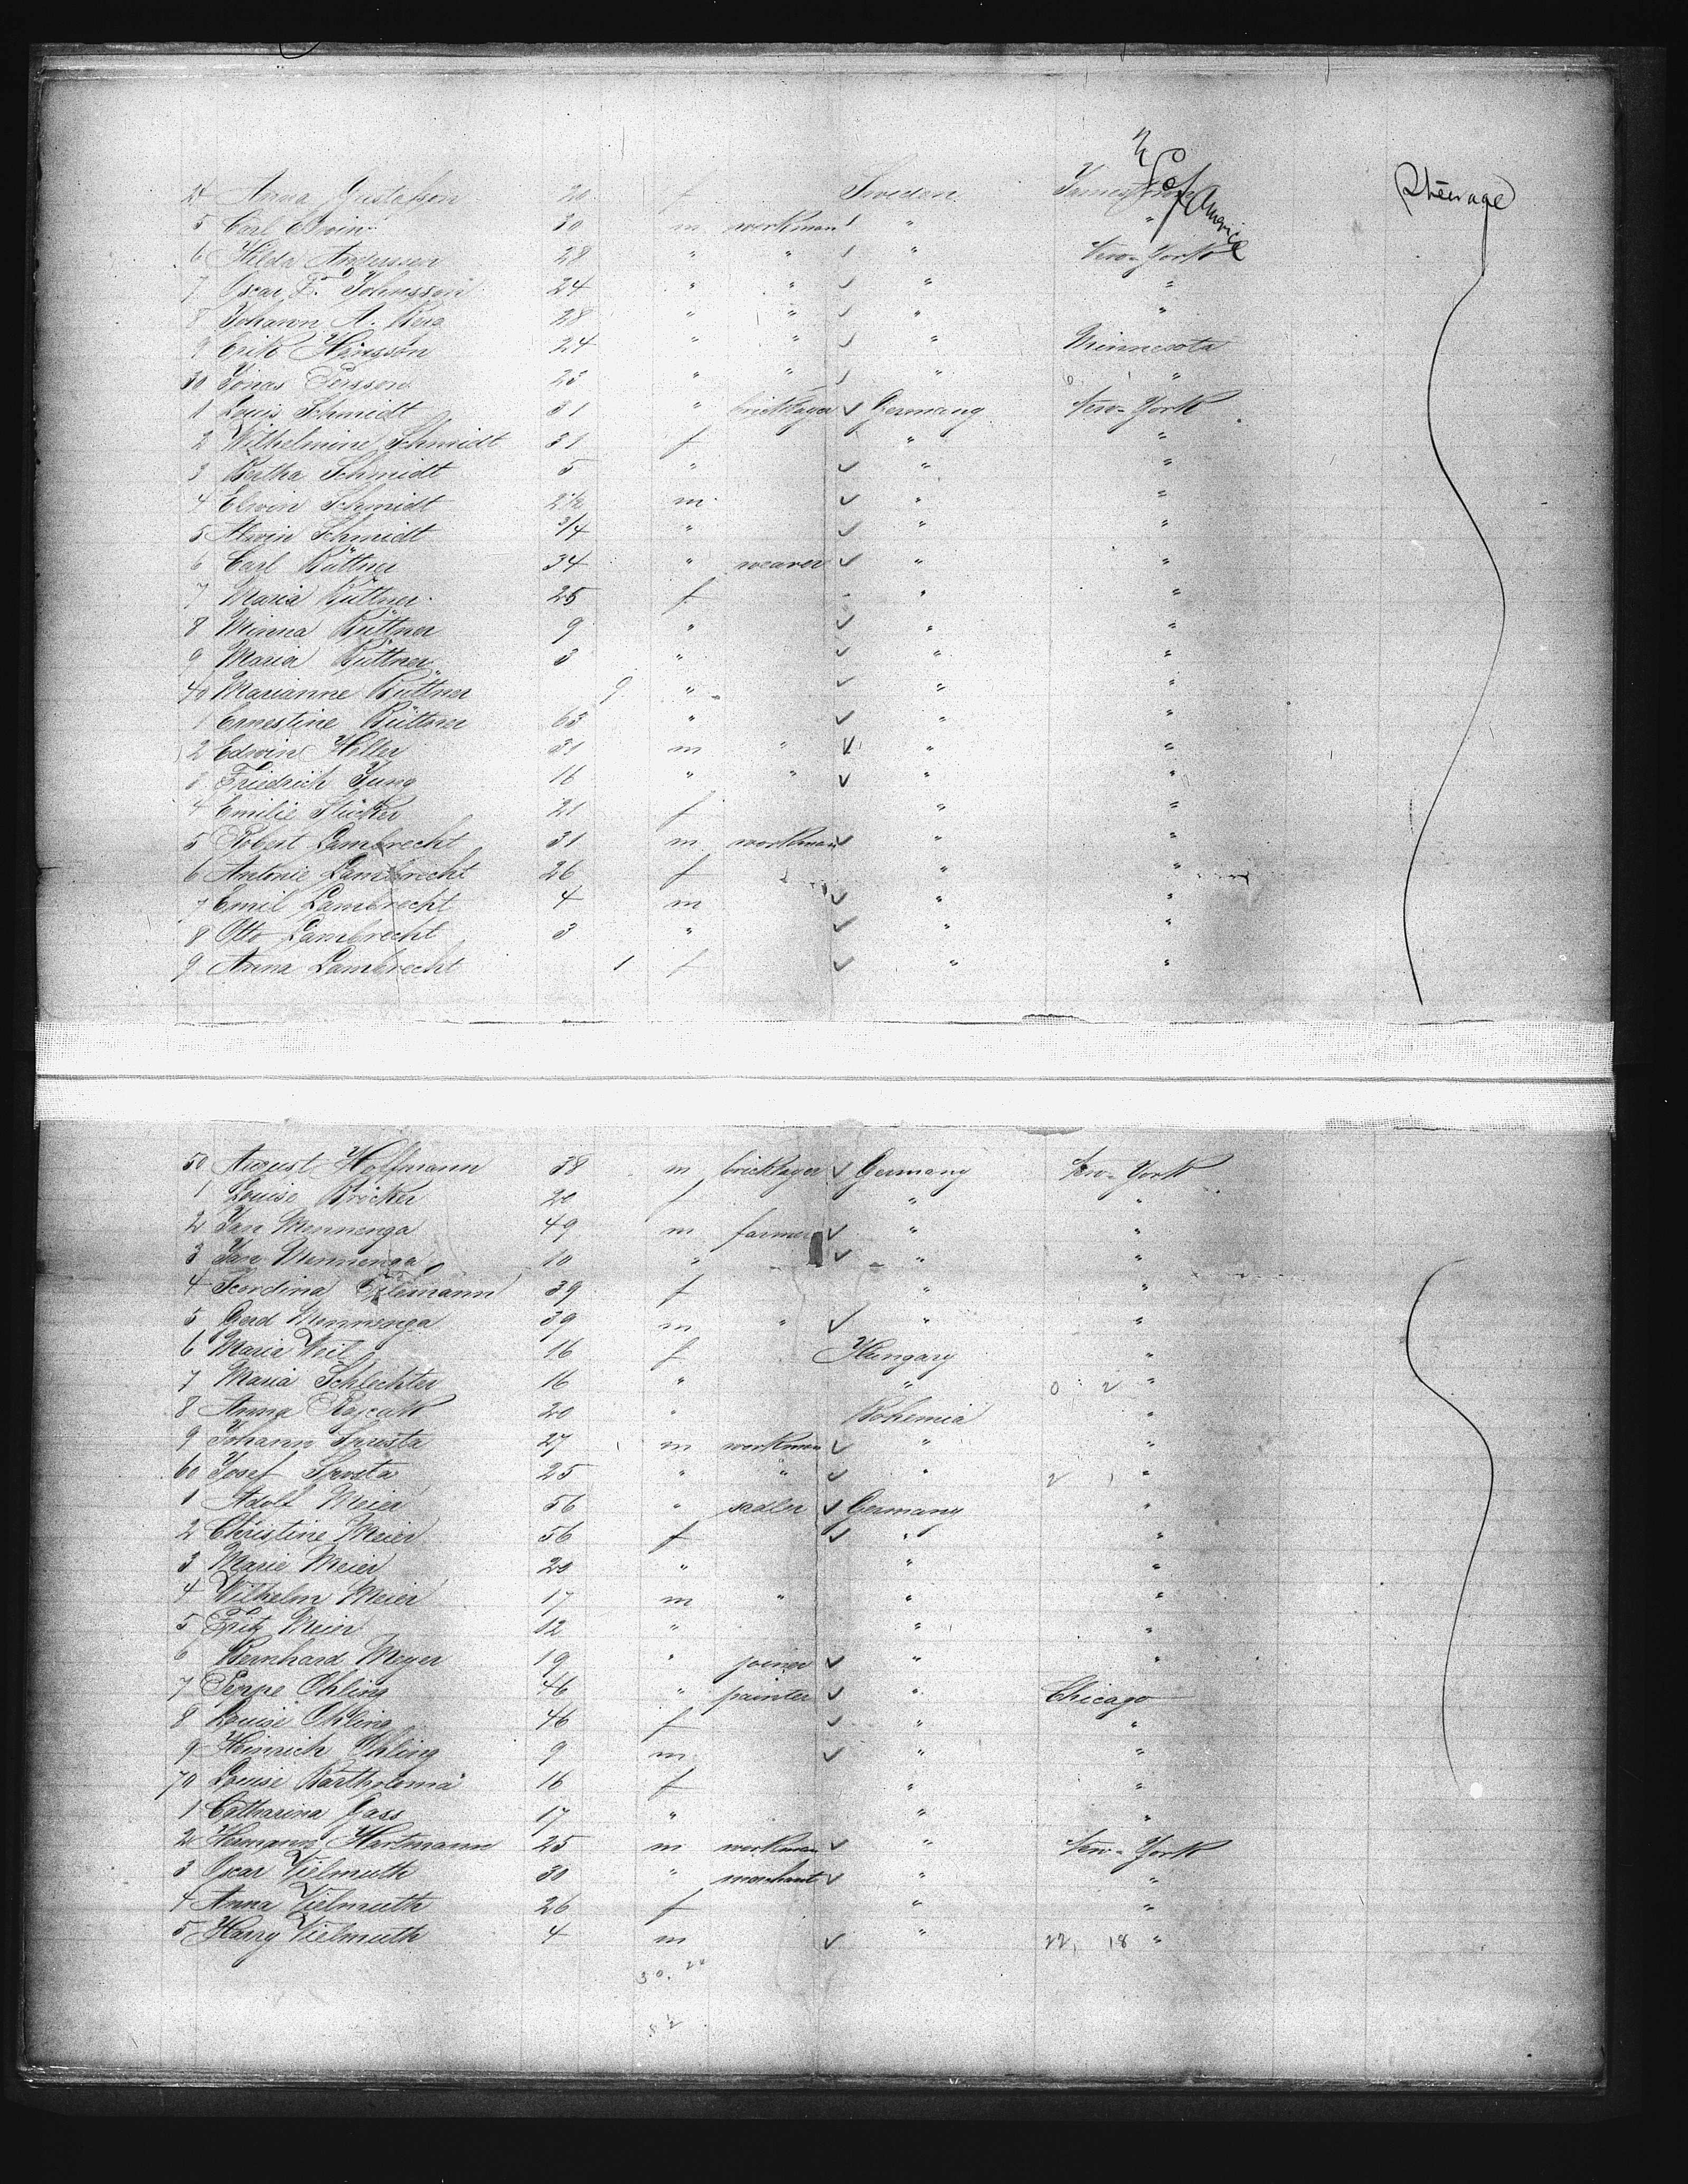 U S of America
24 Anna Gustafson 20 f Sweden Jamestown Steerage
5 Carl 30 m workman " "
6 Hilda Andersson 28 " " " New-York
7 Oscar F. Johnsson 24 " " " "
8 Johann A. Berg 28 " " " "
9 Erik Hansson 24 " " " Minnesota
30 Jonas Persson 23 " " " "
1 Louis Schmidt 31 " bricklayer Germany New-York
2 Wilhelmine Schmidt 31 f " "
3 Bertha Schmidt 5 " " "
4 Elwin Schmidt 2 1/2 m " "
5 Alwin Schmidt 3/4 " " "
6 Carl Büttner 34 " weaver " "
7 Maria Büttner 25 f " "
8 Minna Büttner 9 " " "
9 Maria Büttner 3 " " "
40 Marianne Büttner 9 " " "
1 Ernestine Büttner 63 " " "
2 Edwin Heller 31 m " " "
3 Friedrich Jung 16 " " " "
4 Emilie Stücker 21 f " "
5 Robert Lambrecht 31 m workman " "
6 Antonie Lambrecht 26 f " "
7 Emil Lambrecht 4 m " "
8 Otto Lambrecht 3 " " "
9 Anna Lambrecht 1 f " "
50 August Hoffmann 38 m bricklayer Germany New-York
1 Louise Bröcker 20 f " "
2 Jan Mennenga 49 m farmer " "
3 Jan Mennenga 10 " " "
4 39 f " "
5 Gerd Mennenga 39 m " " "
6 Maria Weil 16 f Hungary "
7 Maria Schlechter 16 " " "
8 Anna 20 " Bohemia "
9 Johann 27 m workman " "
60 Josef 25 " " " "
1 Adolf Meier 56 " sadler Germany "
2 Christine Meier 56 f " "
3 Marie Meier 20 " " "
4 Wilhelm Meier 17 m " " "
5 Fritz Meier 12 " " "
6 Bernhard Meyer 19 " joiner " "
7 Poppe Ohling 46 " painter " Chicago
8 Louise Ohling 46 f " "
9 Heinrich Ohling 9 m " "
70 Louise Bartholomä 16 f " "
1 Catharina Gass 17 " " "
2 Hermann Hartmann 25 m workman " New-York
3 Oscar Vielmuth 30 " merchant " "
4 Anna Vielmuth 26 f " "
5 Harry Vielmuth 4 m " 22, 18 "